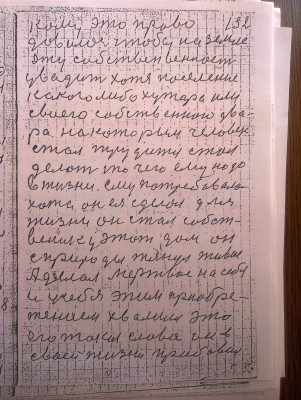 кому это право 132
довилось чтобы на земле
эту собственность
увидит хотя поселение
какого либо хутора или
своего собственного дво-
ра. на котором человек
стал трудится стал
делат то чего ему надо
в жизни. ему потребовалась
хота он ея сделал для
жизни он стал собст-
веник у этот дом он
с природы тянул живое
А делал мертвое на себя
и у себя этим приобре-
тением хвалился это
его такие слова он в
своей жизни прибавил